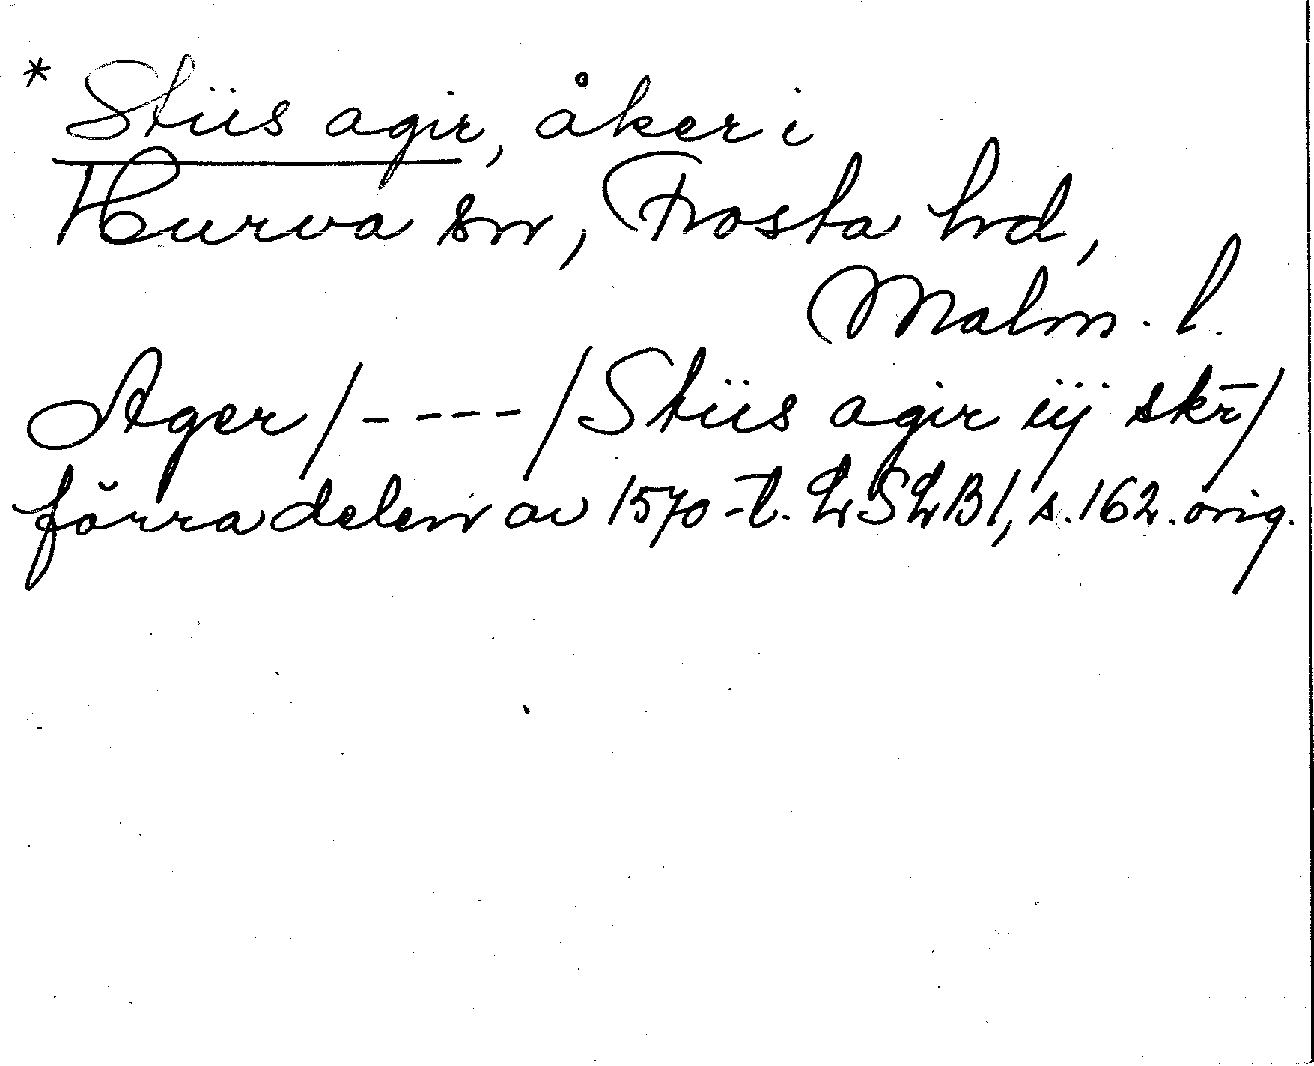 * Stiis agir, åker i
Hurva sn, Frosta hd,
Malm. l.
Ager /----/ Stiis agir iij skr̄/
förra delen av 1570-t. LSLB 1, s. 162. orig.